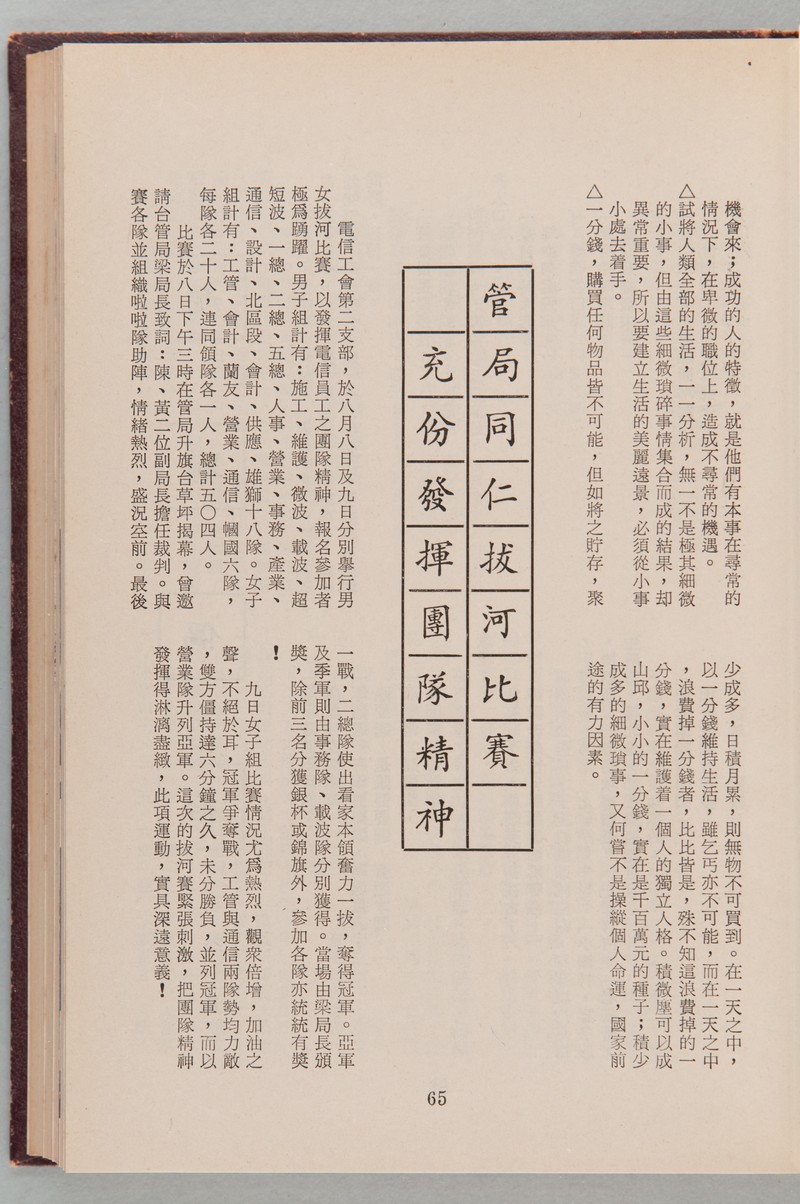 機會來；成功的人的特徵，就是他們有本事在尋常的
情況下，在卑微的職位上，造成不尋常的機遇。
△試將人類全部的生活，一一分析，無一不是極其細微
的小事，但由這些細微瑣碎事情集合而成的結果，却
異常重要，所以要建立生活的美麗遠景，必須從小事
小處去着手。
△一分錢，購買任何物品皆不可能，但如將之貯存，聚
少成多，日積月累，則無物不可買到。在一天之中，
以一分錢維持生活，雖乞丐亦不可能，而在一天之中
，浪費掉一分錢者，比比皆是，殊不知這浪費掉的一
分錢，實在維護着一個人的獨立人格。積微塵可以成
山邱，小小的一分錢，實在是千百萬元的種子；積少
成多的細微瑣事，又何嘗不是操縱個人命運，國家前
途的有力因素。
管局同仁拔河比賽
充份發揮團隊精神
電信工會第二支部，於八月八日及九日分別舉行男
女拔河比賽，以發揮電信員工之團隊精神，報名參加者
極爲踴躍。男子組計有：施工、維護、微波、載波、超
短波、一總、二總、五總、人事、營業、事務、產業、
通信、設計、北區段、會計、供應、雄獅十八隊。女子
組計有：工管、會計、蘭友、營業、通信、幗國六隊，
每隊各二十人，連同領隊各一人，總計五〇四人。
比賽於八日下午三時在管局升旗台草坪揭幕，曾邀
請台管局梁局長致詞：陳、黃二位副局長擔任裁判。與
賽各隊並組織啦啦隊助陣，情緒熱烈，盛況空前。最後
一戰，二總隊使出看家本領奮力一拔，奪得冠軍。亞軍
及季軍則由事務隊、載波隊分別獲得。當場由梁局長頒
獎，除前三名分獲銀杯或錦旗外，參加各隊亦統統有獎
！
九日女子組比賽情況尤爲熱烈，觀衆倍增，加油之
聲，不絕於耳，冠軍爭奪戰，工管與通信兩隊勢均力敵
，雙方僵持達六分鐘之久，未分勝負，並列冠軍，而以
營業隊升列亞軍。這次的拔河賽緊張刺激，把團隊精神
發揮得淋漓盡緻，此項運動，實具深遠意義！
65